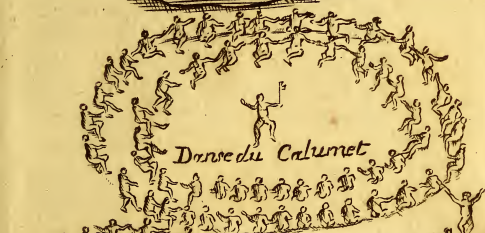 Danse du Calumet